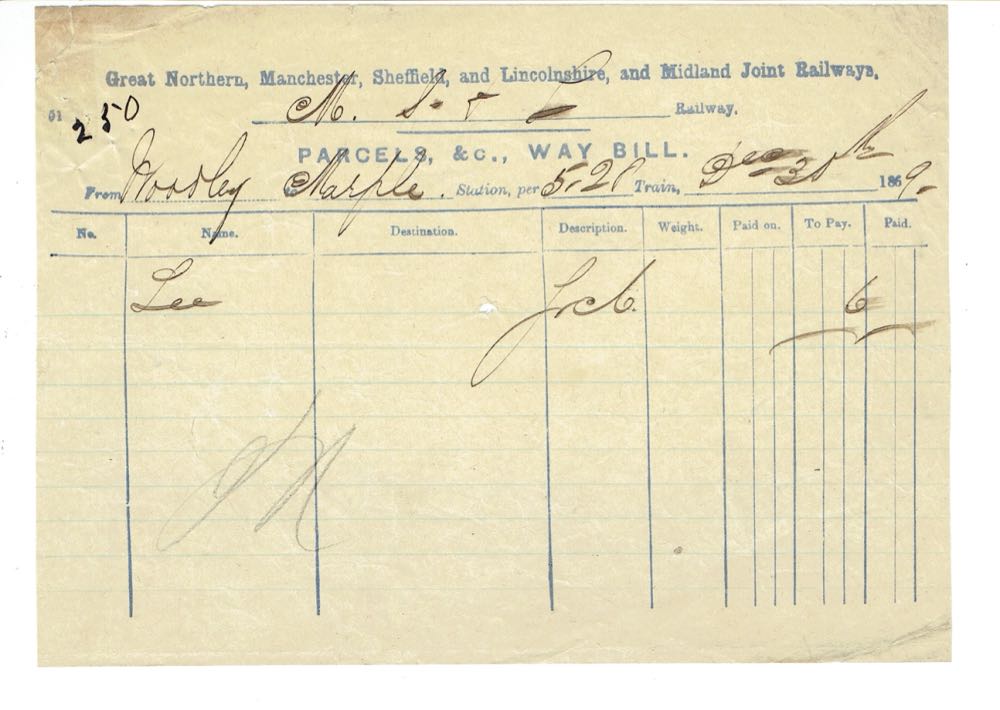 Great Northern, Manchester, Sheffield, and Lincolnshire, and Midland Joint Railways.
01 250 M. S. & L Railway.
PARCELS, &c., WAY BILL.
From Woodley to Marple. Station, per 5.20 Train, Dec 30th 1869.
No. Name. Destination. Description. Weight. Paid on. To Pay. Paid.
Lee 6